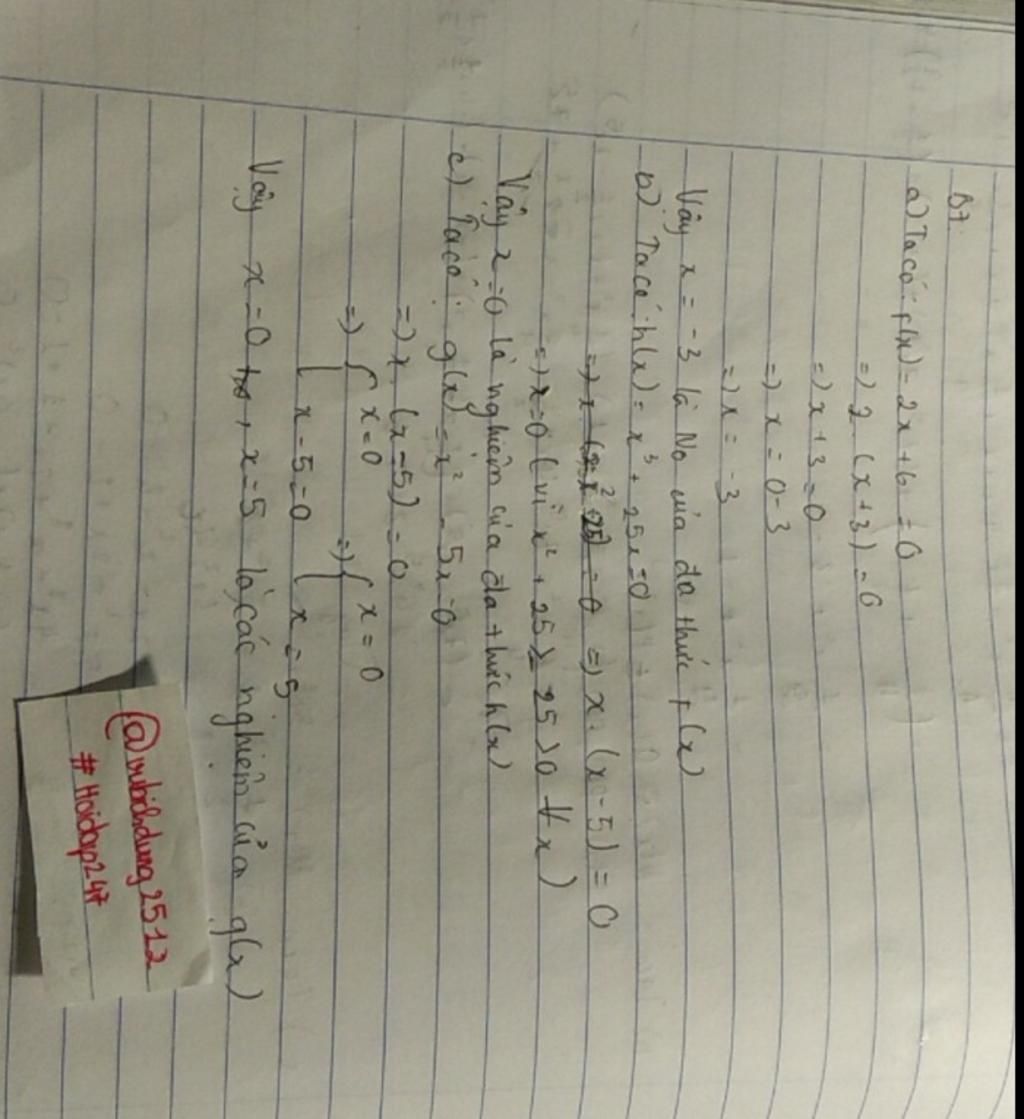 B7.
a) Ta có: f(x) = 2x + 6 = 0
=> 2. (x + 3) = 0
=> x + 3 = 0
=> x = 0 - 3
=> x = -3
Vậy x = -3 là No của đa thức f(x)
b) Ta có: h(x) = x³ + 25x = 0
=> x. = 0 => x. (x - 5) = 0
=> x = 0 (vì x² + 25 ≥ 25 > 0 ∀ x)
Vậy x = 0 là nghiệm của đa thức h(x)
c) Ta có: g(x) = x² - 5x = 0
=> x. (x - 5) = 0
=> { x = 0 => { x = 0
x - 5 = 0 x = 5
Vậy x = 0, x = 5 là các nghiệm của g(x)
#Hoidap247